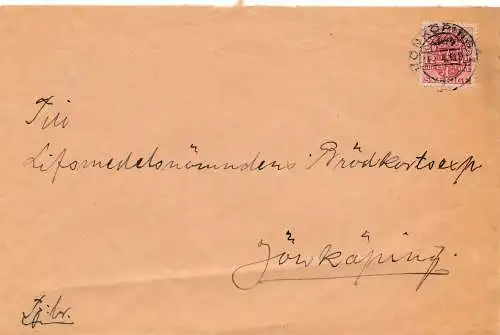 JÖNKÖPING
Till
Lifsmedelsnämndens Brödkortsexp
Jönköping.
Tj.br.